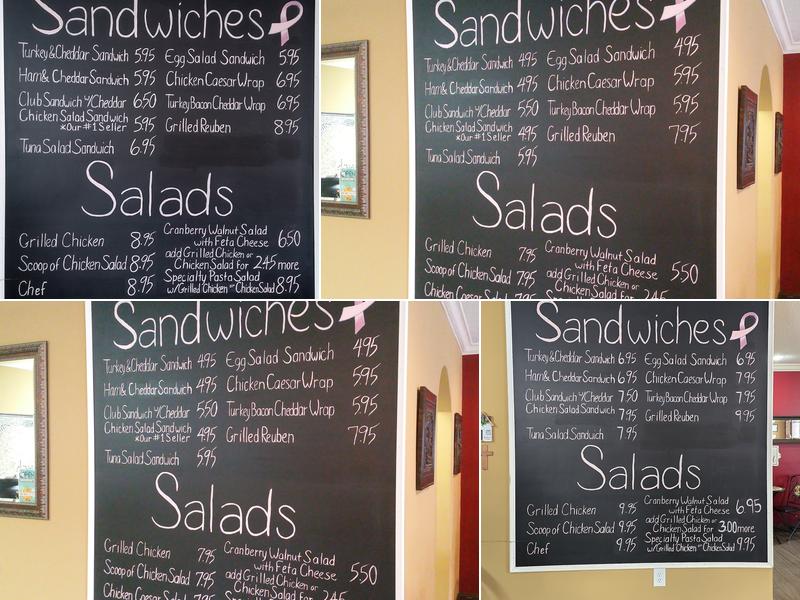 Sandwiches
Turkey & Cheddar Sandwich 5.95 Egg Salad Sandwich 5.95
Ham & Cheddar Sandwich 5.95 Chicken Caesar Wrap 6.95
Club Sandwich w/Cheddar 6.50 Turkey Bacon Cheddar Wrap 6.95
Chicken Salad Sandwich
*Our #1 Seller 5.95 Grilled Reuben 8.95
Tuna Salad Sandwich 6.95
Salads
Grilled Chicken 8.95 Cranberry Walnut Salad
with Feta Cheese 6.50
Scoop of Chicken Salad 8.95 add Grilled Chicken or
Chicken Salad for 2.45 more
Chef 8.95 Specialty Pasta Salad
w/Grilled Chicken or Chicken Salad 8.95
Sandwiches
Turkey & Cheddar Sandwich 4.95 Egg Salad Sandwich 4.95
Ham & Cheddar Sandwich 4.95 Chicken Caesar Wrap 5.95
Club Sandwich w/Cheddar 5.50 Turkey Bacon Cheddar Wrap 5.95
Chicken Salad Sandwich
*Our #1 Seller 4.95 Grilled Reuben 7.95
Tuna Salad Sandwich 5.95
Salads
Grilled Chicken 7.95 Cranberry Walnut Salad
with Feta Cheese 5.50
Scoop of Chicken Salad 7.95 add Grilled Chicken or
Chicken Caesar Chicken Salad for 2.45
Sandwiches
Turkey & Cheddar Sandwich 4.95 Egg Salad Sandwich 4.95
Ham & Cheddar Sandwich 4.95 Chicken Caesar Wrap 5.95
Club Sandwich w/Cheddar 5.50 Turkey Bacon Cheddar Wrap 5.95
Chicken Salad Sandwich
*Our #1 Seller 4.95 Grilled Reuben 7.95
Tuna Salad Sandwich 5.95
Salads
Grilled Chicken 7.95 Cranberry Walnut Salad
with Feta Cheese 5.50
Scoop of Chicken Salad 7.95 add Grilled Chicken or
Chicken Caesar Salad 7.95 Chicken Salad for 2.45
Sandwiches
Turkey & Cheddar Sandwich 6.95 Egg Salad Sandwich 6.95
Ham & Cheddar Sandwich 6.95 Chicken Caesar Wrap 7.95
Club Sandwich w/Cheddar 7.50 Turkey Bacon Cheddar Wrap 7.95
Chicken Salad Sandwich 7.95 Grilled Reuben 9.95
Tuna Salad Sandwich 7.95
Salads
Grilled Chicken 9.95 Cranberry Walnut Salad
with Feta Cheese 6.95
Scoop of Chicken Salad 9.95 add Grilled Chicken or
Chicken Salad for 3.00 more
Chef 9.95 Specialty Pasta Salad
w/Grilled Chicken or Chicken Salad 9.95